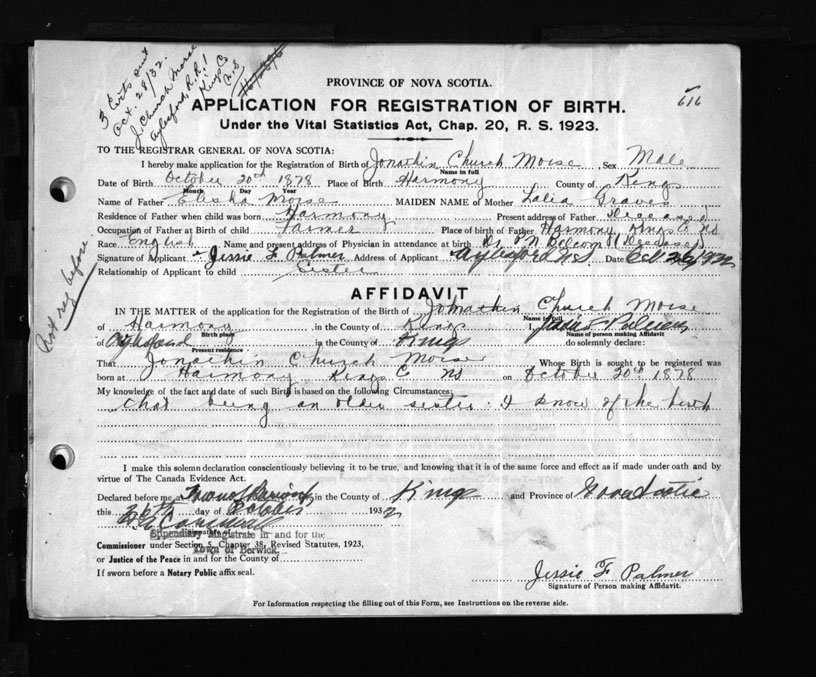 3 Certs out
Oct. 28/32.
J. Church Morse
Aylesford R.R.1
Kings Co
N.S
616
PROVINCE OF NOVA SCOTIA.
APPLICATION FOR REGISTRATION OF BIRTH.
Under the Vital Statistics Act, Chap. 20, R. S. 1923.
TO THE REGISTRAR GENERAL OF NOVA SCOTIA:
I hereby make application for the Registration of Birth of Jonathin Church Morse, Sex Male
Name in full
Date of Birth October 20th 1878 Place of Birth Harmony County of Kings
Month Day Year
Name of Father Elisha Morse MAIDEN NAME of Mother Lalia Graves
Residence of Father when child was born Harmony Present address of Father Deceased
Occupation of Father at Birth of child Farmer Place of birth of Father Harmony Kings Co NS
Race English Name and present address of Physician in attendance at birth Dr P N Balcom (Deceased)
Signature of Applicant Jessie F Palmer Address of Applicant Aylesford N.S. Date Oct 26/1932
Relationship of Applicant to child Sister
Not reg before
AFFIDAVIT
IN THE MATTER of the application for the Registration of the Birth of Johnathin Church Morse
Name in full
of Harmony in the County of Kings I, Jessie F Palmer
Birth place Name of person making Affidavit
of Aylesford in the County of Kings do solemnly declare:
Present residence
That Jonathin Church Morse Whose Birth is sought to be registered was
born at Harmony Kings Co NS on October 20th 1878
My knowledge of the fact and date of such Birth is based on the following Circumstances:
That being an older sister I know of the birth
I make this solemn declaration conscientiously believing it to be true, and knowing that it is of the same force and effect as if made under oath and by
virtue of The Canada Evidence Act.
Declared before me at in the County of Kings and Province of Nova Scotia
this 26th day of October 1932
Stipendiary Magistrate in and for the
Commissioner under Section 5, Chapter 38, Revised Statutes, 1923,
Town of Berwick,
or Justice of the Peace in and for the County of
If sworn before a Notary Public affix seal.
Jessie F Palmer
Signature of Person making Affidavit.
For Information respecting the filling out of this Form, see Instructions on the reverse side.